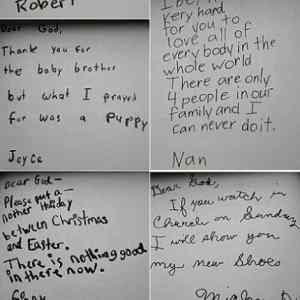 Robert
Dear God,
Thank you for
the baby brother
but what I prayed
for was a puppy
Joyce
very hard
for you to
love all of
every body in the
whole world
There are only
4 people in our
family and I
can never do it.
Nan
Dear God—
Please put a—
nother holiday
between Christmas
and Easter.
There is nothing good
in there now.
Dear God,
If you watch in
Church on Sunday
I will show you
my new shoes